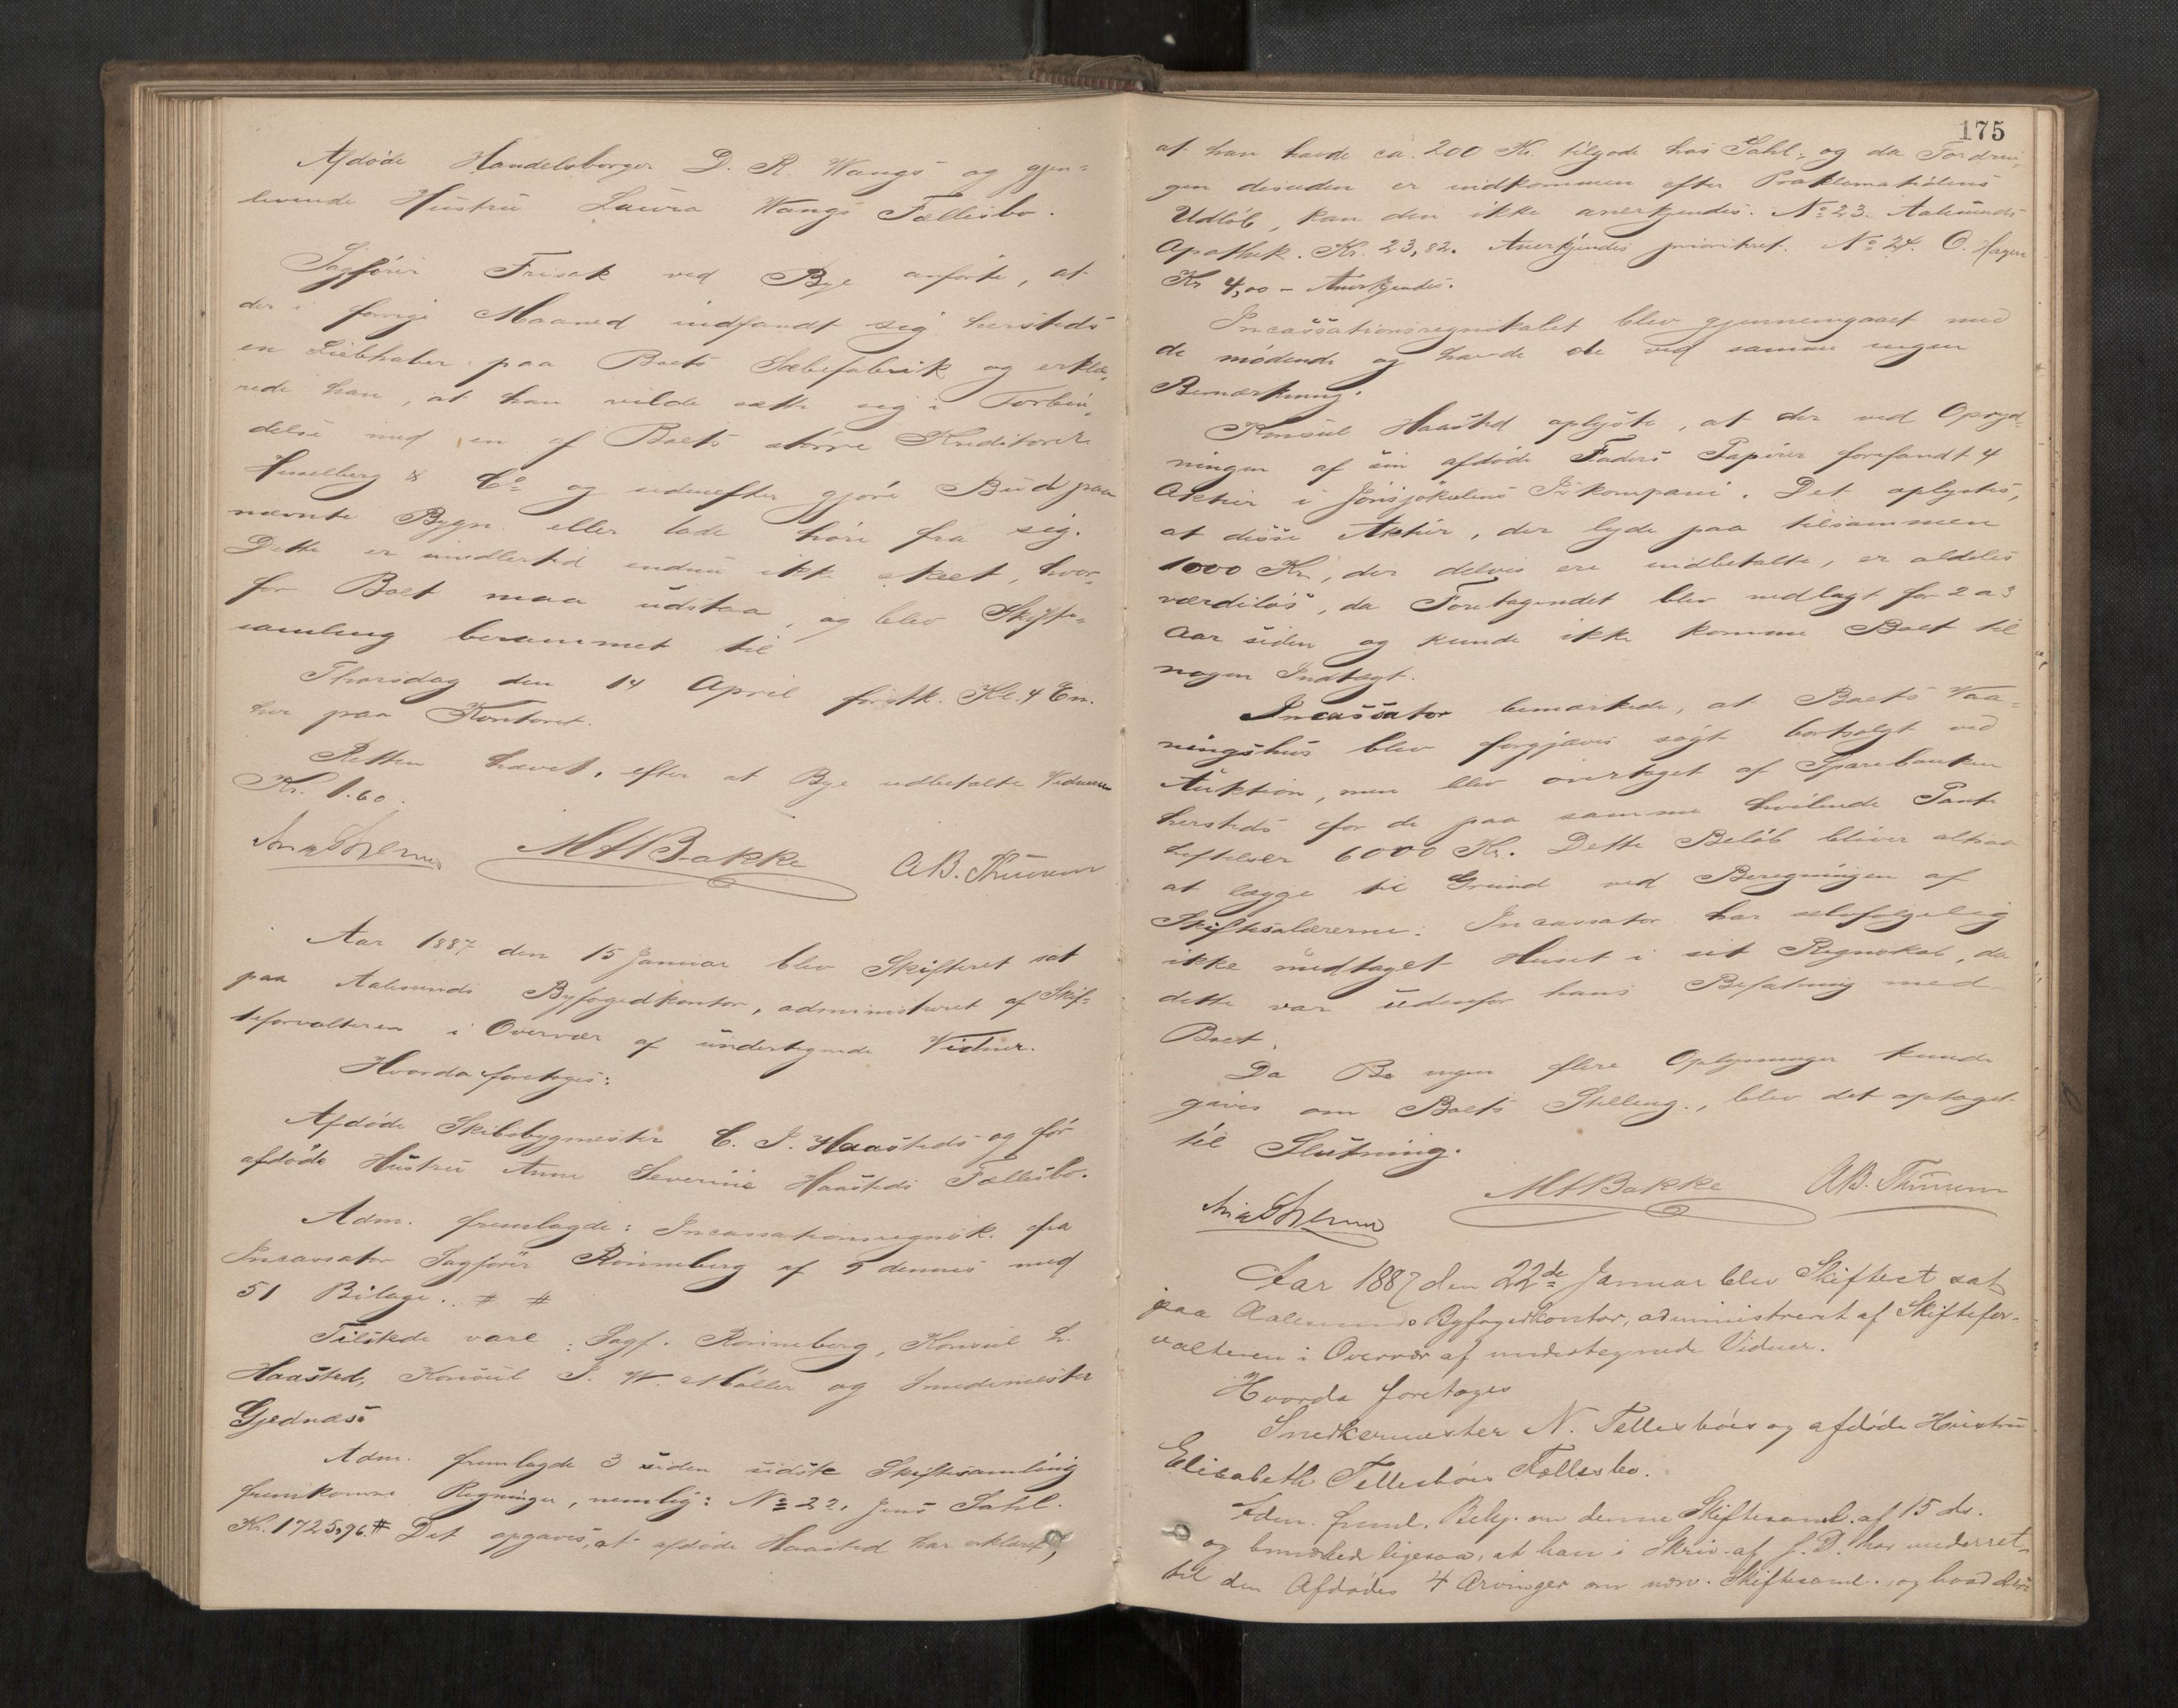 Afdöde Handelsborger D. R. Wangs og gjen=
levende Hustru Laura Wangs Fællesbo.
Sagförer Frisak ved Bye anförte, at
der i forrige Maaned indfandt sig hersteds
en Liebhaber paa Boets Sæbefabrik og erklæ,
rede han, at han vilde sætte sig i Forbin,
delse med en af Boets större Kreditorer
Huselberg & Co og udenefter gjöre Bud paa
nævnte Bygn. eller lade höre fra sig.
Dette er imidlertid endnu ikke skeet, hvor,
for Boet maa udstaa, og blev Skifte=
samling berammet til
Thorsdag den 14 April förstk. Kl. 4 Em.
her paa Kontoret.
Retten hævet, efter at Bye udbetalte Vidnerne
Kr. 1.60.
MABakke AB. Thuesen
Aar 1887 den 15 Januar blev Skifteret sat
paa Aalesunds Byfogedkontor, administreret af Skif=
teforvalteren i Overvær af undertegnede Vidner.
Hvorda foretoges:
Afdöde Skibsbygmester C. J. Haasteds og för
afdöde Hustru Anne Severine Haasteds Fællesbo.
Adm. fremlagde: Incassationsregnsk. fra
Incassator Sagförer Rönneberg af 5 dennes med
51 Bilage. # #
Tilstede vare: Sagf. Rönneberg, Konsul L.
Haasted, Konsul J. W. Möller og Smedemester
Gjednæss
Adm. fremlagde 3 siden sidste Skiftesamling
fremkomne Regninger, nemlig: No 22. Jens Sahl.
Kr. 1725,96. # Det opgaves, at afdöde Haasted har erklæret,
175
at han havde ca. 200 Kr. tilgode hos Sahl, og da Fordrin,
gen desuden er indkommen efter Proklamatidens
Udlöb, kan den ikke anerkjendes. No 23. Aalesunds
Apothek. Kr. 23,82. Anerkjendes prioritert. No 24. O. Hagen
Kr 4,00 – Anerkjendes.
Incassationsregnskabet blev gjennemgaaet med
de mödende og havde de ved samme ingen
Bemærkning.
Konsul Haasted oplyste, at der ved Opryd=
ningen af sin afdöde Faders Papirer forefandt 4
Aktier i Jönsjökulens Iskompani. Det oplystes,
at disse Aktier, der lyde paa tilsammen
1000 Kr, der delvis ere indbetalte, er aldeles
værdilös, da Foretagendet blev nedlagt for 2 a 3
Aar siden og kunde ikke komme Boet til
nogen Indtægt.
Incassator bemærkede, at Boets Vaa=
ningshus blev forgjæves sögt bortsolgt ved
Auktion, men blev overtaget af Sparebanken
hersteds for de paa samme hvilende Pante
heftelser 6000 Kr. Dette Belöb bliver altsaa
at lægge til Grund ved Beregningen af
Skiftesalærerne. Incassator har selvfölgelig
ikke medtaget Huset i sit Regnskab, da
dette var udenfor hans Befatning med
Boet.
Da Bo ingen flere Oplysninger kunde
gives om Boets Stilling, blev det optaget
til Slutning.
MABakke AB. Thuesen
Aar 1887 den 22de Januar blev Skifteret sat
paa Aalesunds Byfogedkontor, administreret af Skiftefor-
valteren i Overvær af undertegnede Vidner.
Hvorda foretoges
Snedkermester N. Tellesböes og afdöde Hustru
Elisabeth Tellesböes Fællesbo.
Adm. freml. Bekj. om denne Skiftesaml. af 15 ds.
og bemærked ligesaa, at han i Skriv. af s. D. har underret-
tet den Afdödes 4 Arvinger om nærv. Skiftesaml., og hvad der